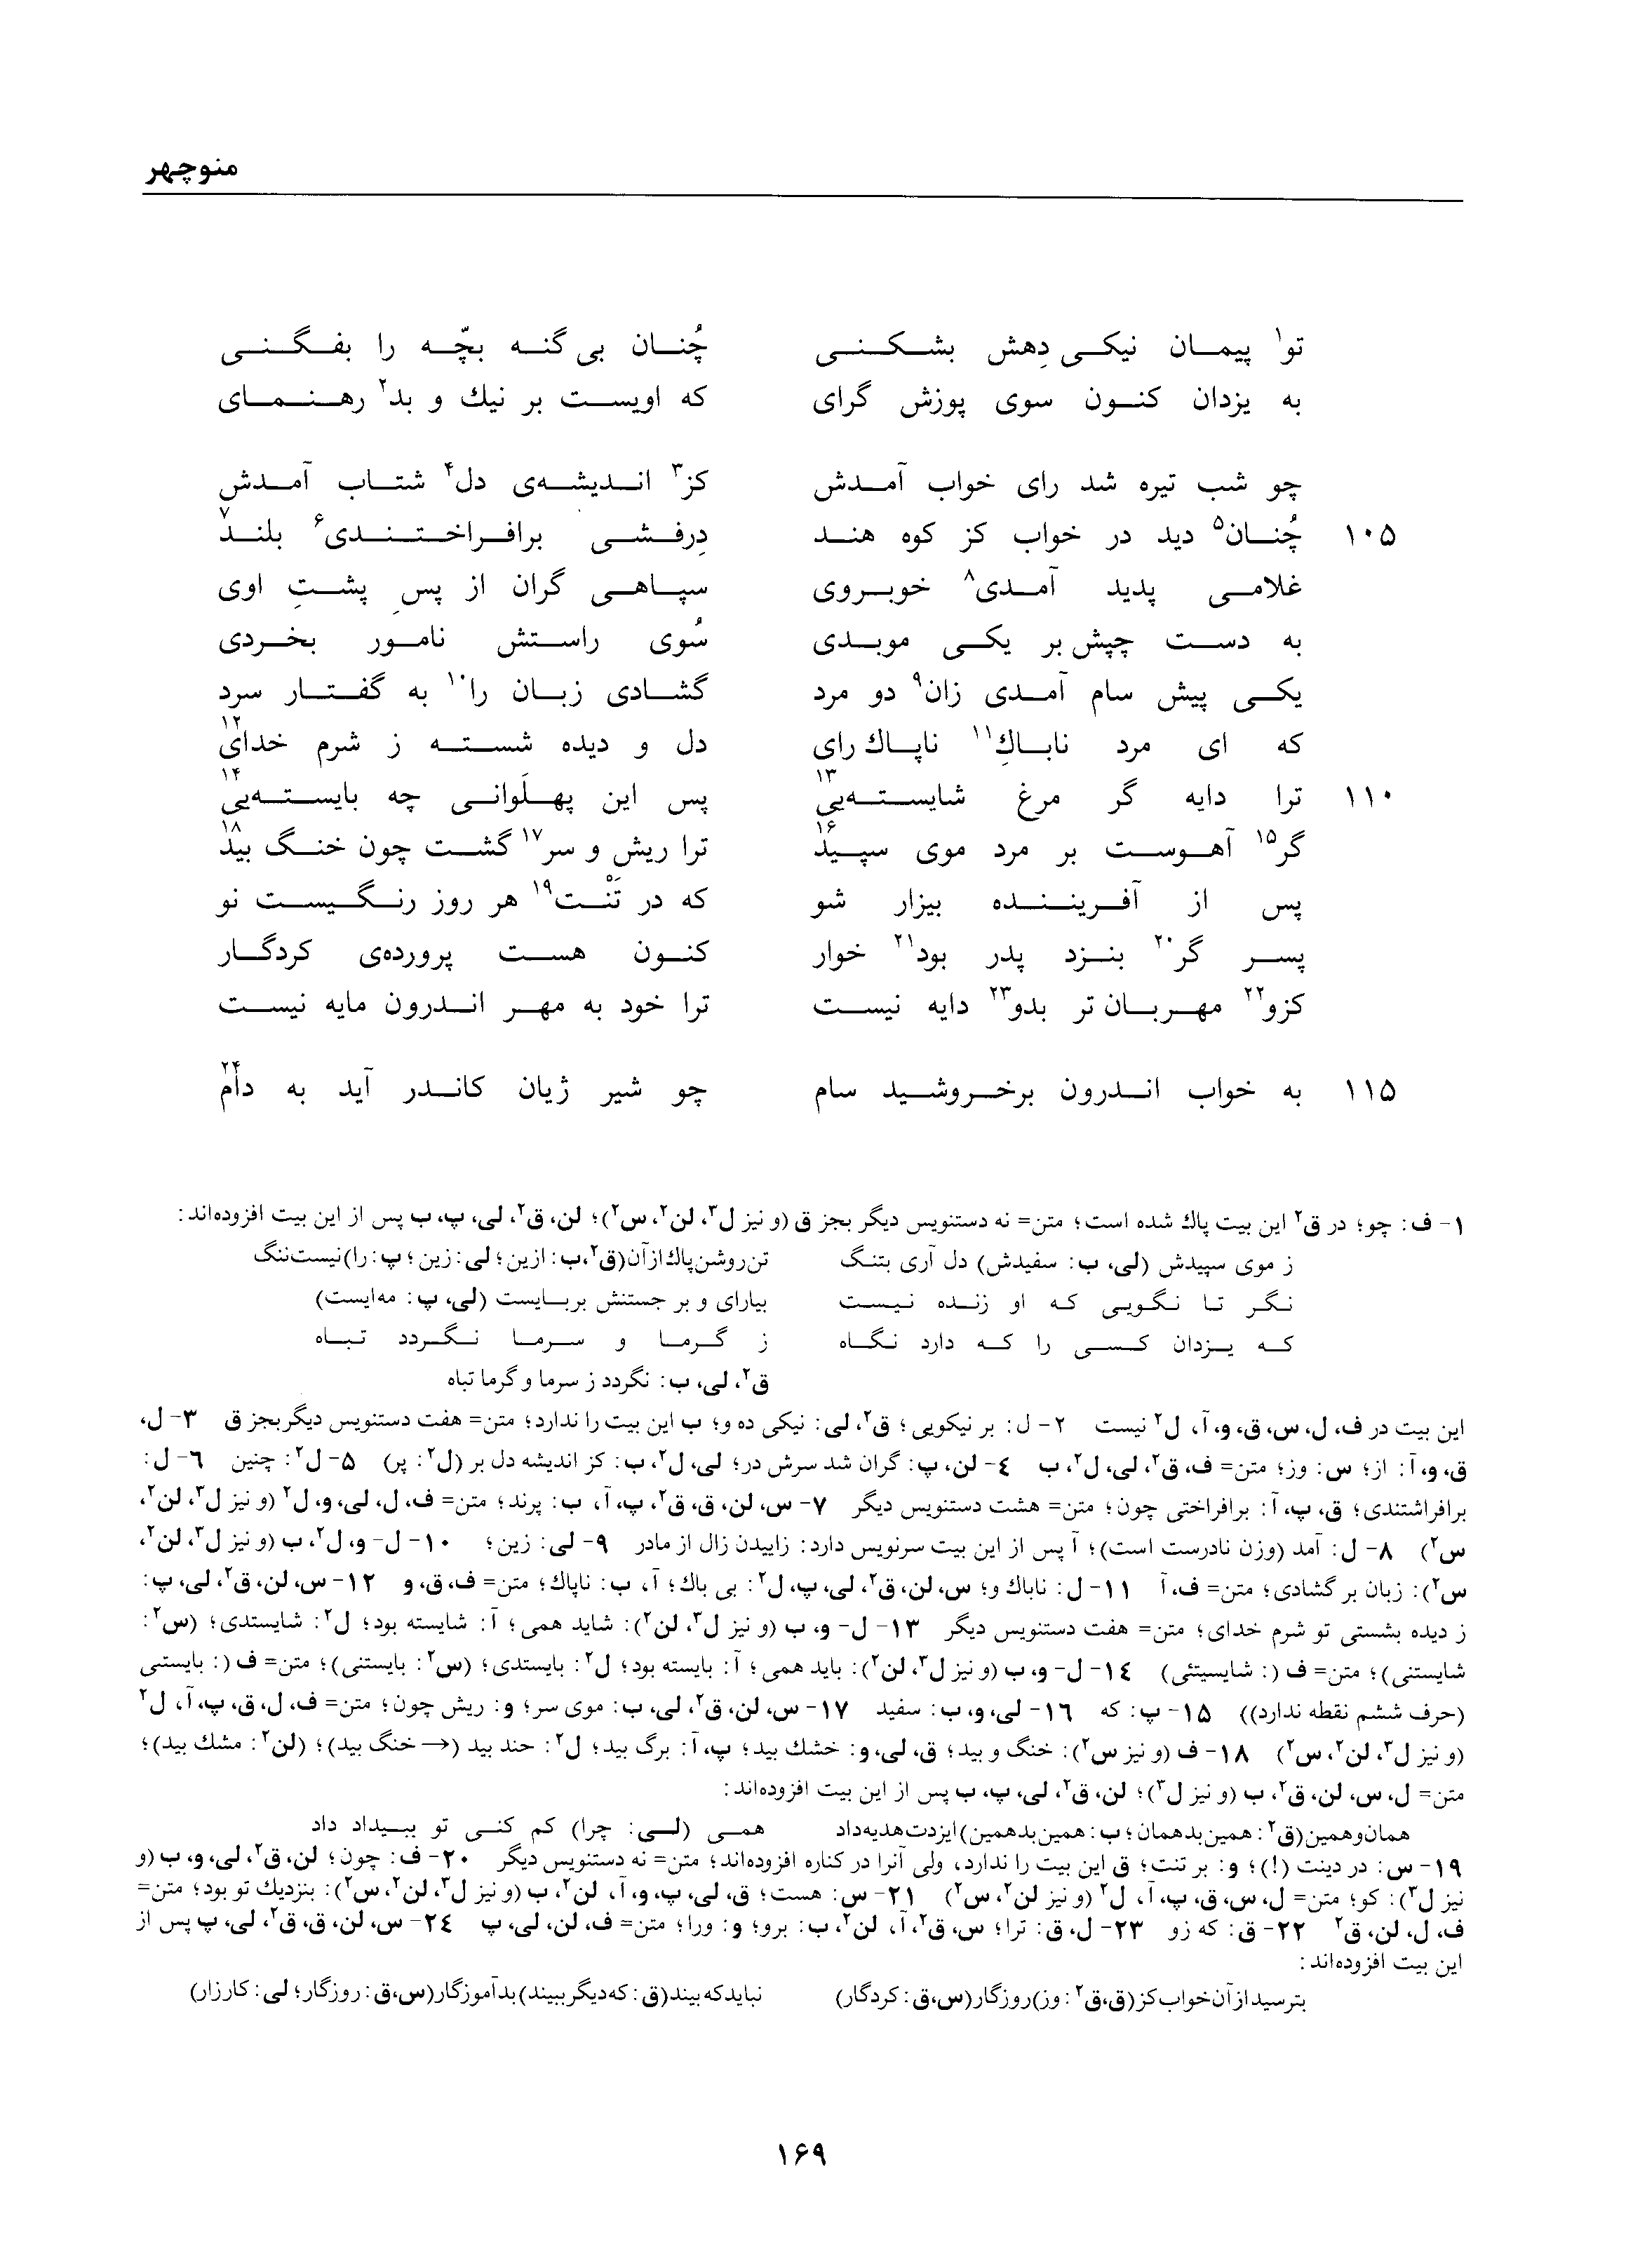 منوچهر
تو۱ پیمان نیکی دِهش بشکنی چُنان بی گنه بچّه را بفگنی
به یزدان کنون سوی پوزش گرای که اویست بر نیك و بد۲ رهنمای
چو شب تیره شد رای خواب آمدش کز۳ اندیشه‌ی دل۴ شتاب آمدش
۱۰۵ چُنان۵ دید در خواب کز کوه هند دِرفشی برافراختندی۶ بلند۷
غلامی پدید آمدی۸ خوبروی سپاهی گران از پسِ پشتِ اوی
به دست چپش بر یکی موبدی سُوی راستش نامور بخردی
یکی پیش سام آمدی زان۹ دو مرد گشادی زبان را۱۰ به گفتار سرد
که ای مرد ناباكِ۱۱ ناپاك رای دل و دیده شسته ز شرم خدای۱۲
۱۱۰ ترا دایه گر مرغ شایسته‌یی۱۳ پس این پهلَوانی چه بایسته‌یی۱۴
گر۱۵ آهوست بر مرد موی سپید۱۶ ترا ریش و سر۱۷ گشت چون خنگ بید۱۸
پس از آفریننده بیزار شو که در تَنْت۱۹ هر روز رنگیست نو
پسر گر۲۰ بنزد پدر بود۲۱ خوار کنون هست پرورده‌ی کردگار
کزو۲۲ مهربان تر بدو۲۳ دایه نیست ترا خود به مهر اندرون مایه نیست
۱۱۵ به خواب اندرون برخروشید سام چو شیر ژیان کاندر آید به دام۲۴
۱- ف: چو؛ در ق۲ این بیت پاك شده است؛ متن= نه دستنویس دیگر بجز ق (و نیز ل۳، لن۲، س۲)؛ لن، ق۲، لی، پ، ب پس از این بیت افزوده‌اند:
ز موی سپیدش (لی، ب: سفیدش) دل آری بتنگ تن روشن پاك از آن (ق۲، ب: ازین؛ لی: زین؛ پ: را) نیست ننگ
نگر تا نگویی که او زنده نیست بیارای و بر جستنش بربایست (لی، پ: مه‌ایست)
که یزدان کسی را که دارد نگاه ز گرما و سرما نگردد تباه
ق۲، لی، ب: نگردد ز سرما و گرما تباه
این بیت در ف، ل، س، ق، و، آ، ل۲ نیست ۲- ل: بر نیکویی؛ ق۲، لی: نیکی ده و؛ ب این بیت را ندارد؛ متن= هفت دستنویس دیگر بجز ق ۳- ل،
ق، و، آ: از؛ س: وز؛ متن= ف، ق۲، لی، ل۲، ب ۴- لن، پ: گران شد سرش در؛ لی، ل۲، ب: کز اندیشه دل بر (ل۲: پر) ۵- ل۲: چنین ۶- ل:
برافراشتندی؛ ق، پ، آ: برافراختی چون؛ متن= هشت دستنویس دیگر ۷- س، لن، ق، ق۲، پ، آ، ب: پرند؛ متن= ف، ل، لی، و، ل۲ (و نیز ل۳، لن۲،
س۲) ۸- ل: آمد (وزن نادرست است)؛ آ پس از این بیت سرنویس دارد: زاییدن زال از مادر ۹- لی: زین؛ ۱۰- ل- و، ل۲، ب (و نیز ل۳، لن۲،
س۲): زبان بر گشادی؛ متن= ف، آ ۱۱- ل: ناباك و؛ س، لن، ق۲، لی، پ، ل۲: بی باك؛ آ، ب: ناپاك؛ متن= ف، ق، و ۱۲- س، لن، ق۲، لی، پ:
ز دیده بشستی تو شرم خدای؛ متن= هفت دستنویس دیگر ۱۳- ل- و، ب (و نیز ل۳، لن۲): شاید همی؛ آ: شایسته بود؛ ل۲: شایستدی؛ (س۲:
شایستنی)؛ متن= ف (: شایسیتئی) ۱۴- ل- و، ب (و نیز ل۳، لن۲): باید همی؛ آ: بایسته بود؛ ل۲: بایستدی؛ (س۲: بایستنی)؛ متن= ف (: بایستی
(حرف ششم نقطه ندارد)) ۱۵- پ: که ۱۶- لی، و، ب: سفید ۱۷- س، لن، ق۲، لی، ب: موی سر؛ و: ریش چون؛ متن= ف، ل، ق، پ، آ، ل۲
(و نیز ل۳، لن۲، س۲) ۱۸- ف (و نیز س۲): خنگ و بید؛ ق، لی، و: خشك بید؛ پ، آ: برگ بید؛ ل۲: حند بید (→ خنگ بید)؛ (لن۲: مشك بید)؛
متن= ل، س، لن، ق۲، ب (و نیز ل۳)؛ لن، ق۲، لی، پ، ب پس از این بیت افزوده‌اند:
همان و همین (ق۲: همین بد همان؛ ب: همین بد همین) ایزدت هدیه داد همی (لی: چرا) کم کنی تو ببیداد داد
۱۹- س: در دینت (!)؛ و: بر تنت؛ ق این بیت را ندارد، ولی آنرا در کناره افزوده‌اند؛ متن= نه دستنویس دیگر ۲۰- ف: چون؛ لن، ق۲، لی، و، ب (و
نیز ل۳): کو؛ متن= ل، س، ق، پ، آ، ل۲ (و نیز لن۲، س۲) ۲۱- س: هست؛ ق، لی، پ، و، آ، لن۲، ب (و نیز ل۳، لن۲، س۲): بنزدیك تو بود؛ متن=
ف، ل، لن، ق۲ ۲۲- ق: که زو ۲۳- ل، ق: ترا؛ س، ق۲، آ، لن۲، ب: برو؛ و: ورا؛ متن= ف، لن، لی، پ ۲۴- س، لن، ق، ق۲، لی، پ پس از
این بیت افزوده‌اند:
بترسید از آن خواب کز (ق، ق۲: وز) روزگار (س، ق: کردگار) نباید که بیند (ق: که دیگر ببیند) بد آموزگار (س، ق: روزگار؛ لی: کارزار)
۱۶۹